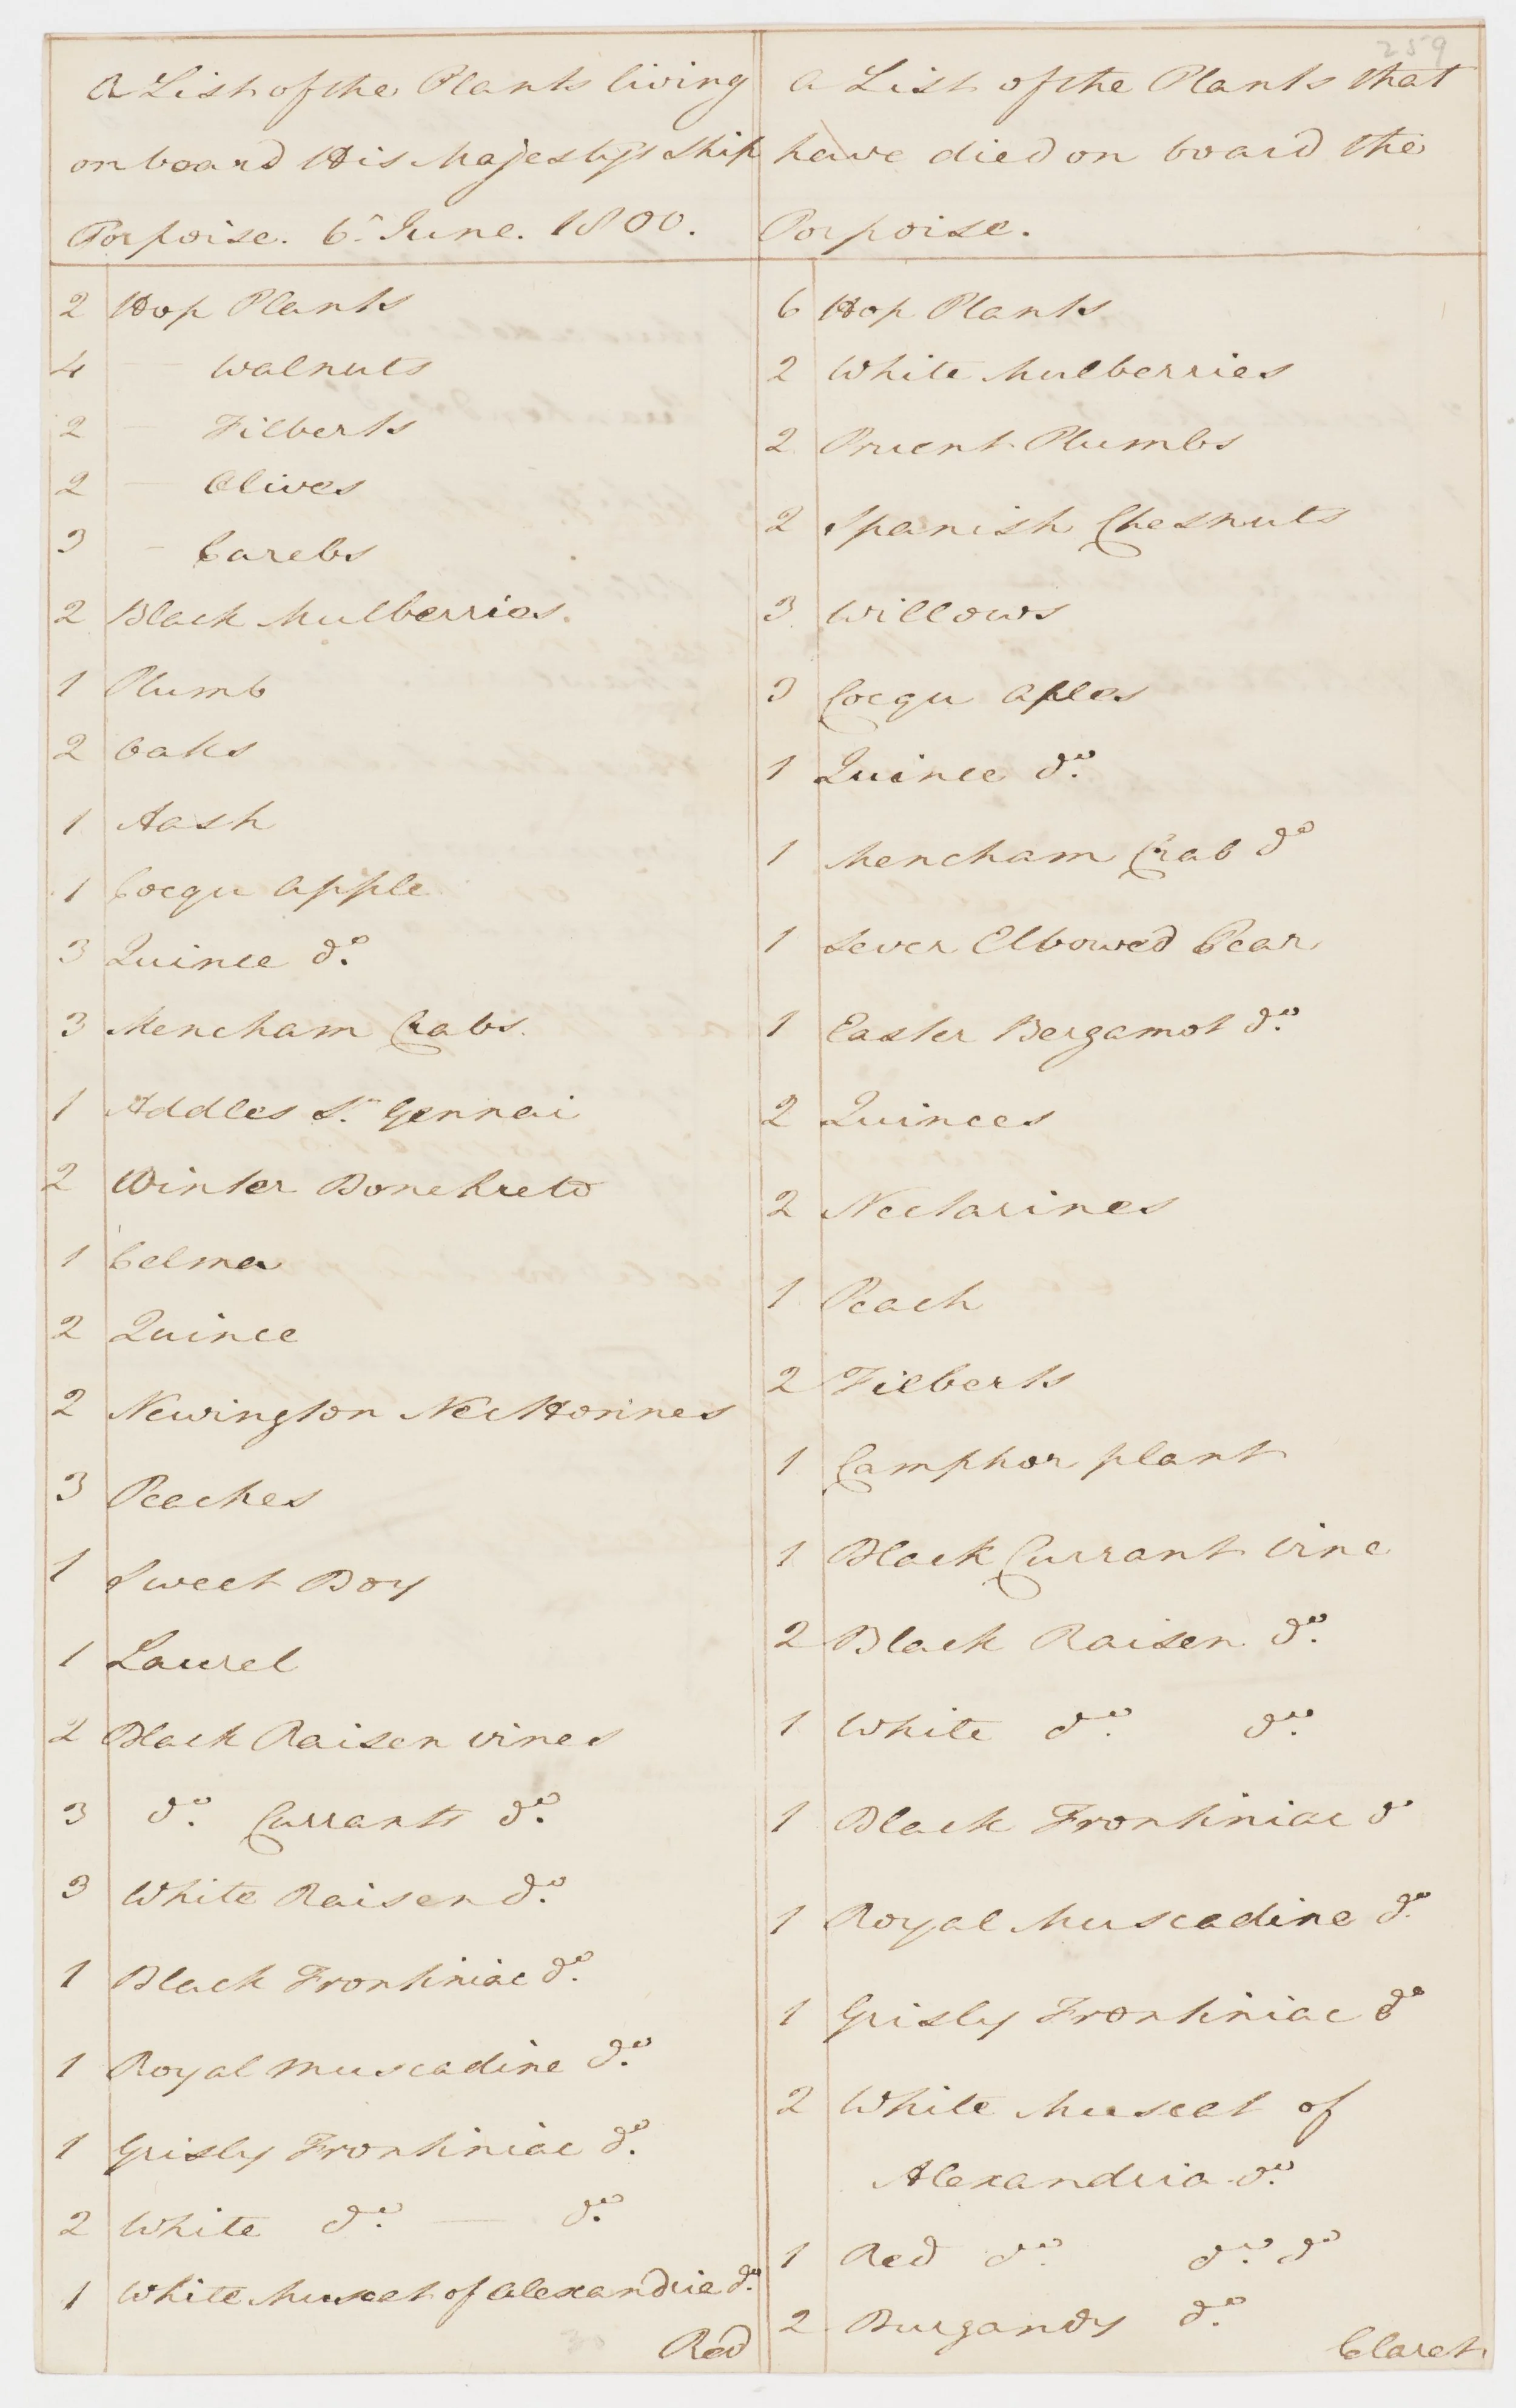 259
A List of the Plants living
on board His Majestys Ship
Porpoise. 6th June. 1800.
2 Hop Plants
4 — Walnuts
2 — Filberts
2 — Olives
3 - Carebs
2 Black Mulberries.
1 Plumb
2 Oaks
1 Aash
1 Cocqu Apple
3 Quince do.
3 Mencham Crabs.
1 Addles St. Gennai
2 Winter Bonchreto
1 Colmer
2 Quince
2 Newington Necttorines
3 Peaches
1 Sweet Boy
1 Laurel
2 Black Raisen vines
3 do. Currants do.
3 White Raisen do.
1 Black Frontiniac do.
1 Royal Muscadine do.
1 Grisly Frontiniac do.
2 White do. — do.
1 White Muscat of Alexandrie do.
Red
A List of the Plants that
have died on board the
Porpoise.
6 Hop Plants
2 White Mulberries
2 Pruent Plumbs
2 Spanish Chesnuts
3 Willows
3 Cocqu Aples
1 Quince do.
1 Mencham Crab do
1 Sever Elbowed Pear
1 Easter Bergamot do.
2 Quinces
2 Nectarines
1 Peach
2 Filberts
1 Camphor plant
1 Black Currant vine
2 Black Raisen do.
1 White do. do.
1 Black Frontiniac do
1 Royal Muscadine do.
1 Grisly Frontiniac do
2 White Muscat of
Alexandria do.
1 Red do. do. do
2 Burgandy do.
Claret